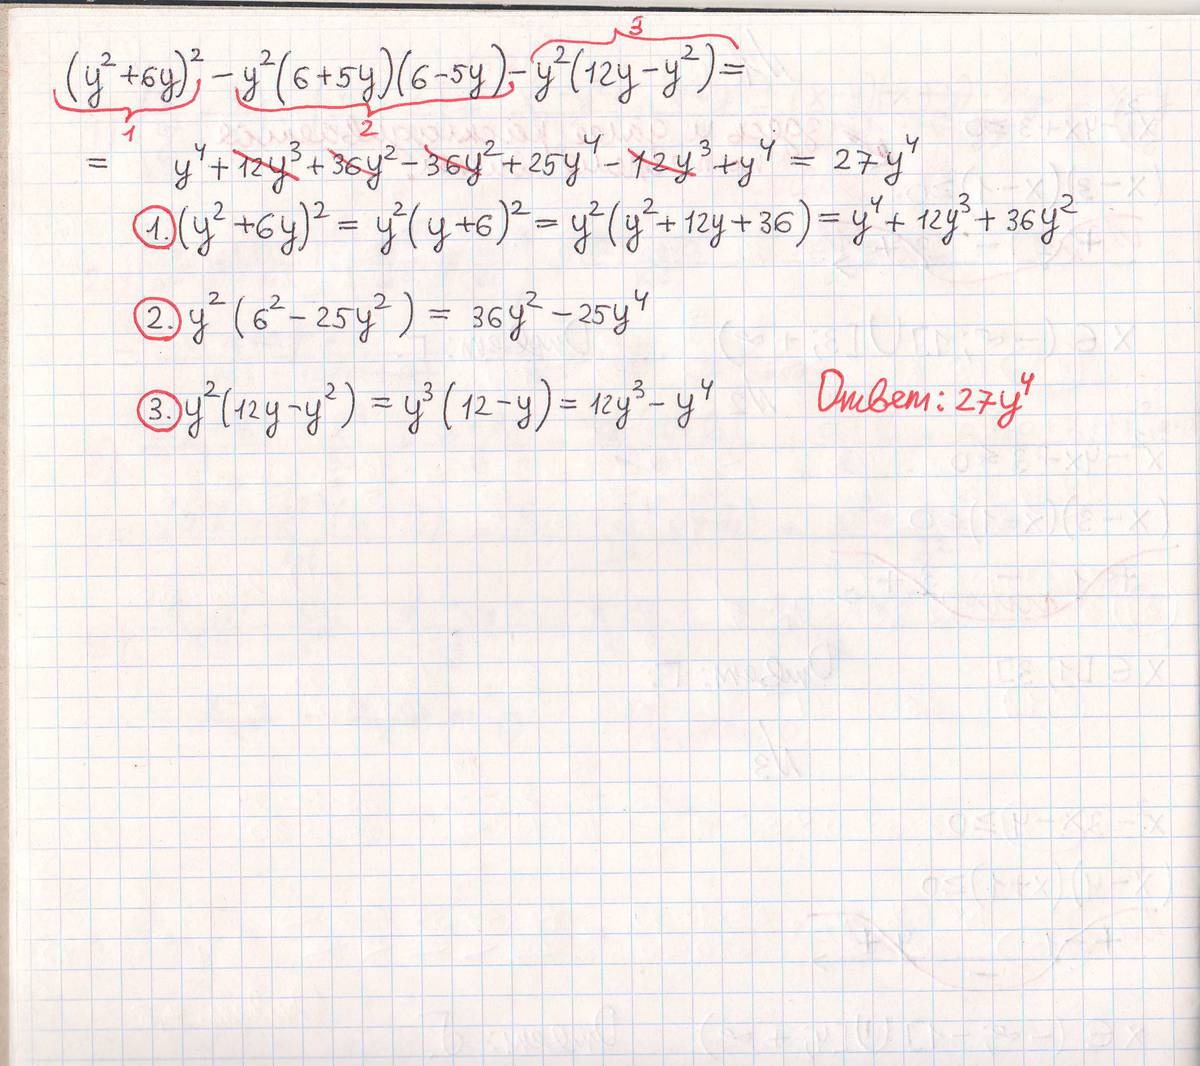 3
(y² + 6y)² − y²(6 + 5y)(6 − 5y) − y²(12y − y²) =
1 2
= y⁴ + 12y³ + 36y² − 36y² + 25y⁴ − 12y³ + y⁴ = 27y⁴
1. (y² + 6y)² = y²(y + 6)² = y²(y² + 12y + 36) = y⁴ + 12y³ + 36y²
2. y²(6² − 25y²) = 36y² − 25y⁴
3. y²(12y − y²) = y³(12 − y) = 12y³ − y⁴ Ответ: 27y⁴